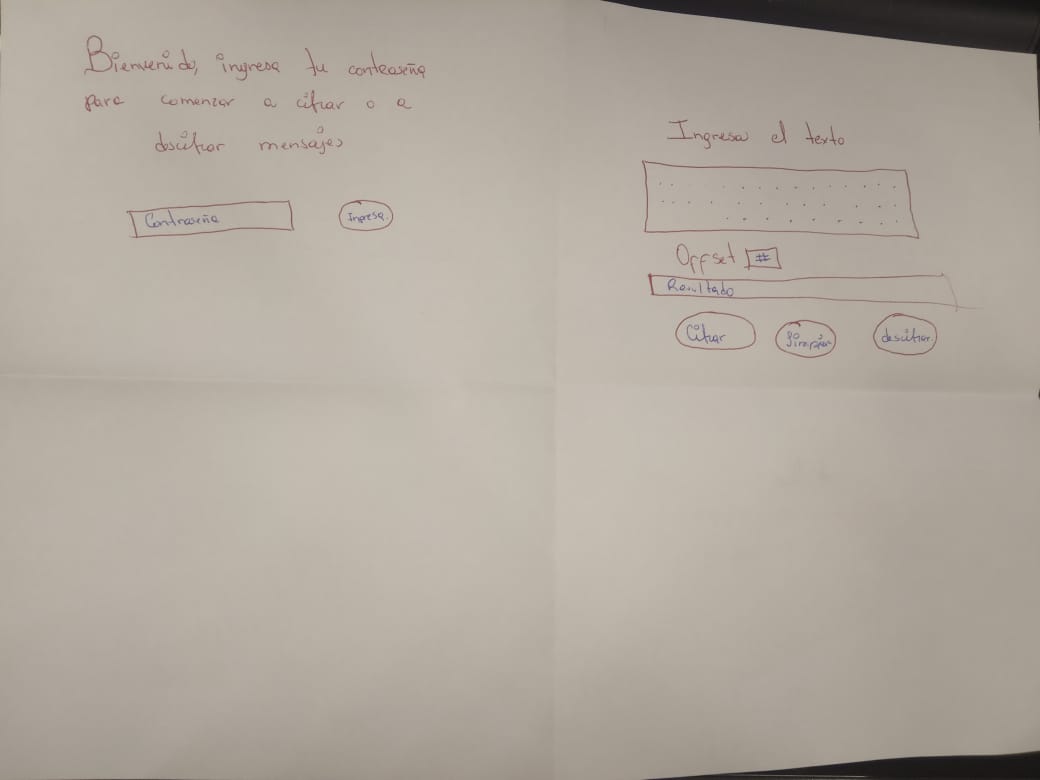 Bienvenido, ingresa tu contraseña
para comenzar a cifrar o a
descifrar mensajes
Contraseña
Ingresa.
Ingresa el texto
Offset #
Resultado
Cifrar
limpiar
descifrar.